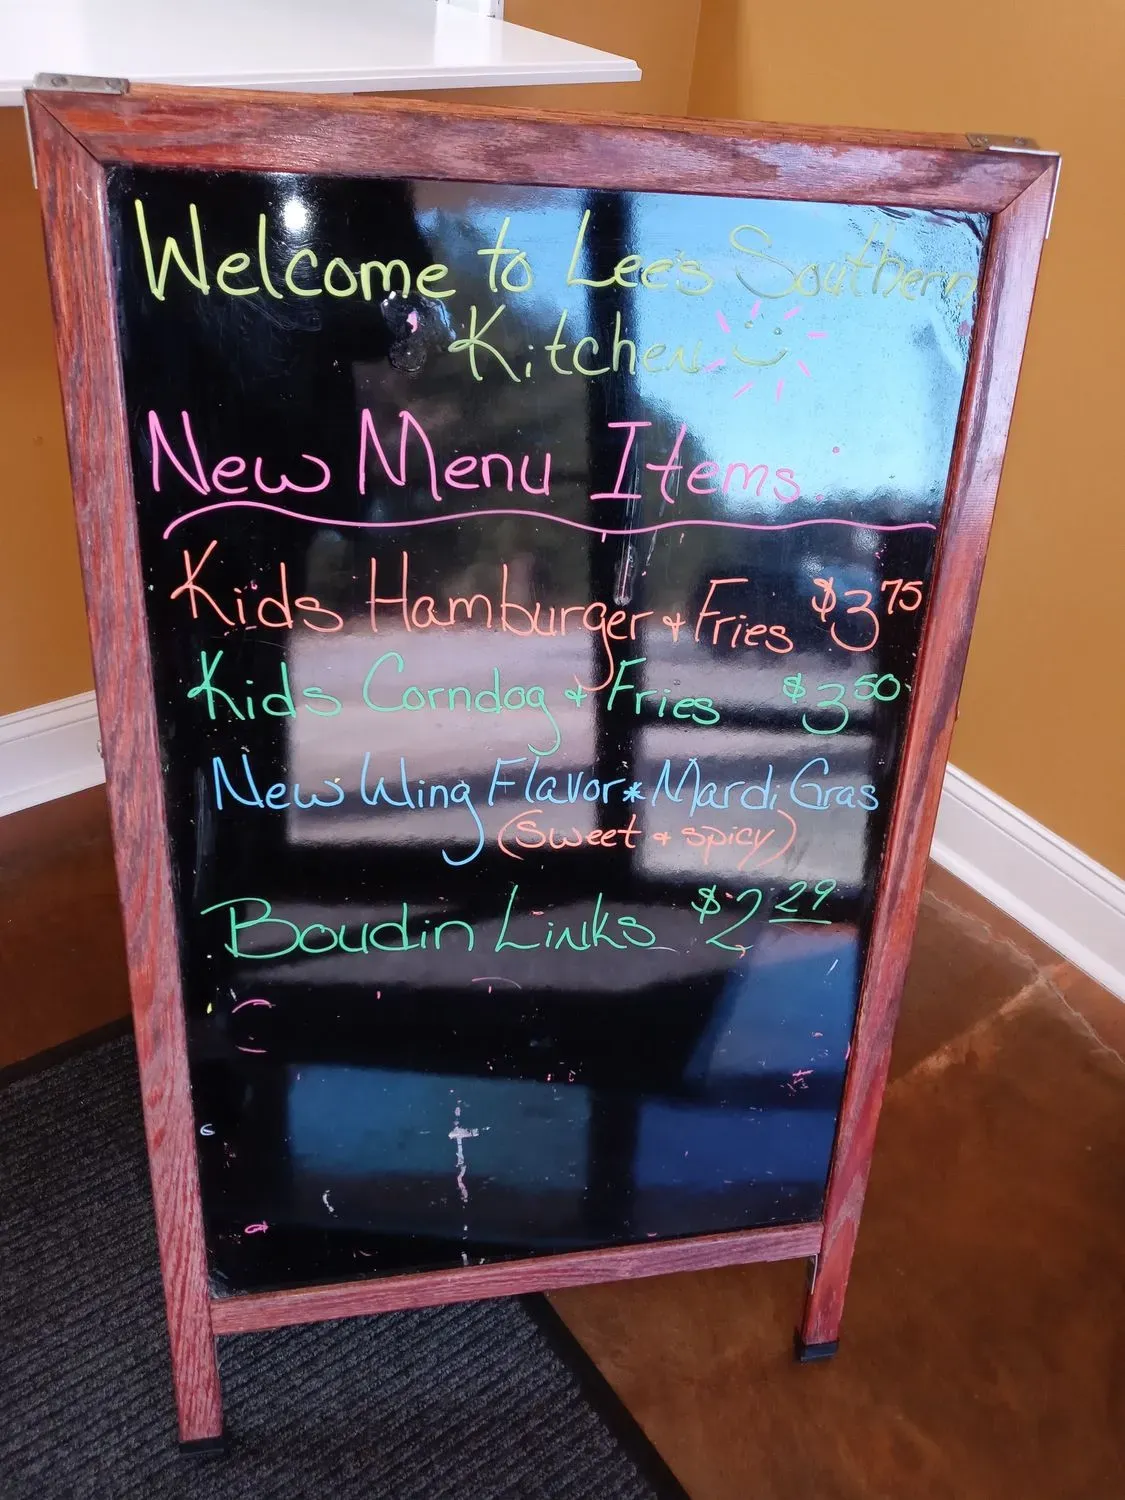 Welcome to Lee's Southern
Kitchen
New Menu Items:
Kids Hamburger & Fries $3.75
Kids Corndog & Fries $3.50
New Wing Flavor * Mardi Gras
(Sweet & spicy)
Boudin Links $2.29